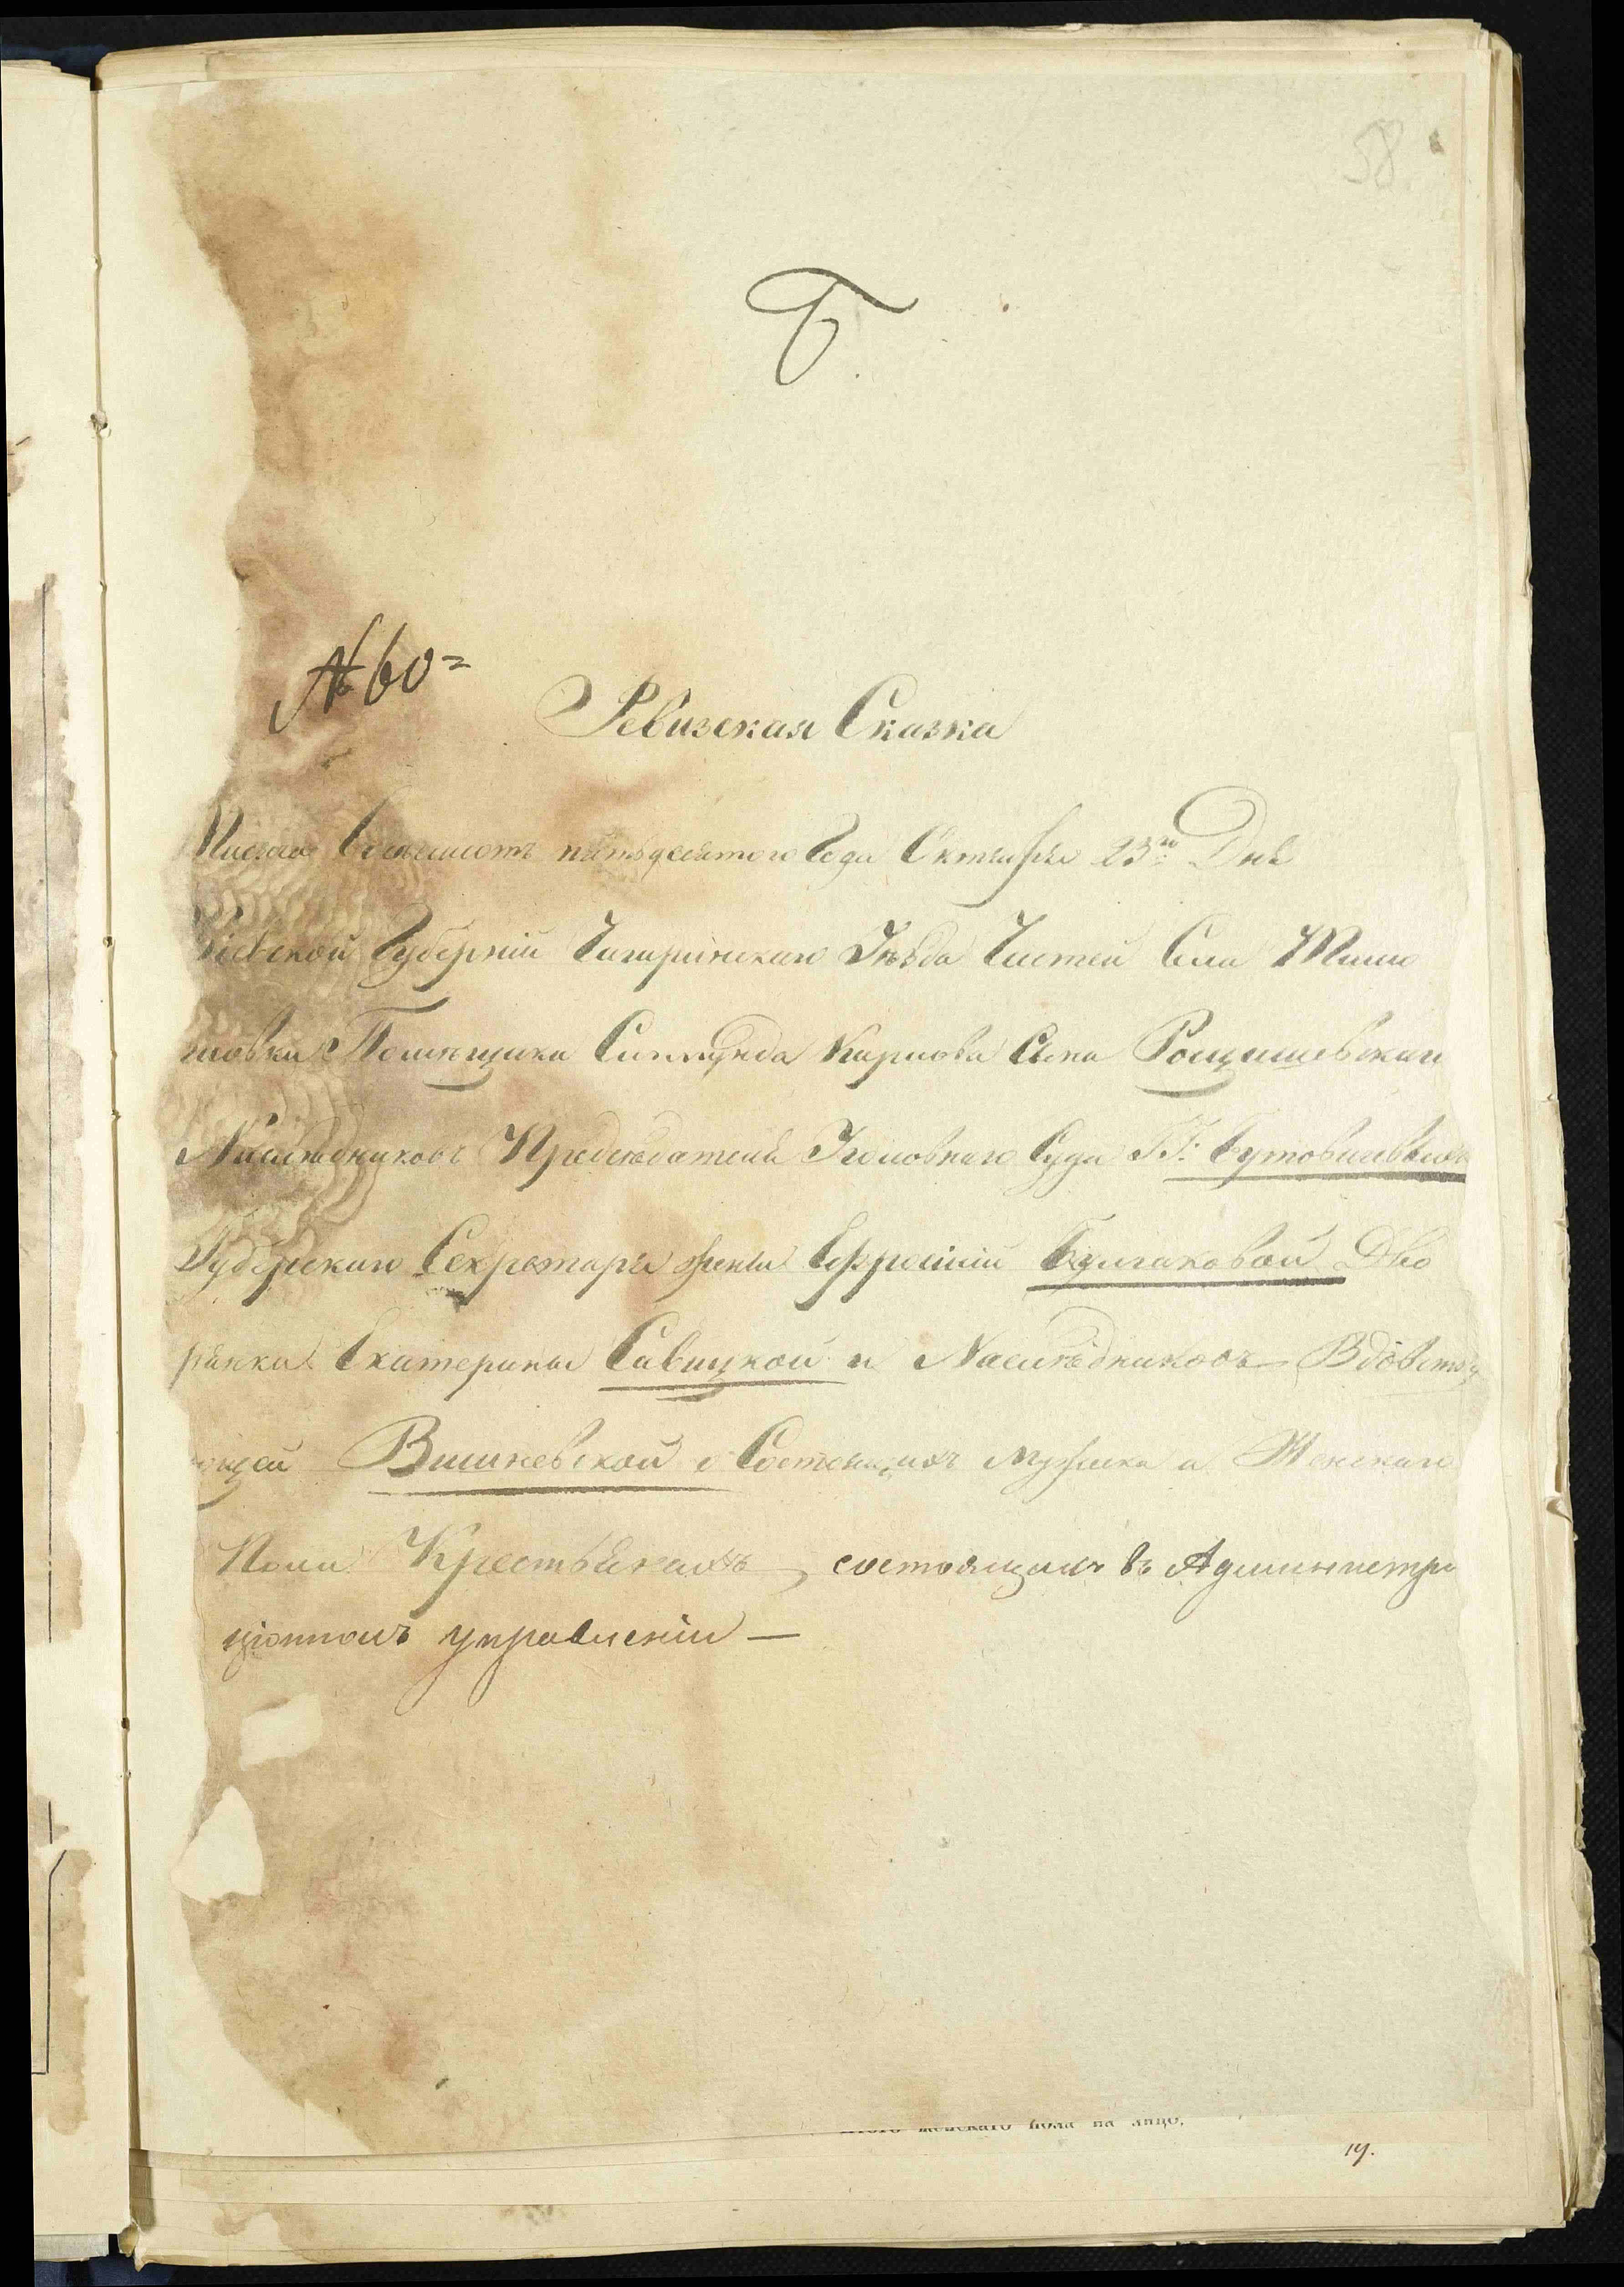 58
Б.
№ 60=
Ревизская Сказка
Тысяча Восемьсотъ пятьдесятого Года Октября 23го Дня
Кіевской Губерніи Чигиринского Уѣзда Частей Села
Помѣщика Сигмунда Карлова Сына Рощишевскаго
Наслѣдниковъ Предсѣдателя Уголовнаго Суда ГГ: Бутовичевыхъ
Губерскаго Секретаря жены Ефросиніи Булгаковой Дво
рянки Екатерины Савицкой и Наслѣдниковъ Вдовств
ющей Вишневской о Состоящихъ мужеска и Женскаго
Пола Крестьянахъ, состоящихъ въ Администра
ціонномъ управленіи —
женскаго пола на лицо.
19.